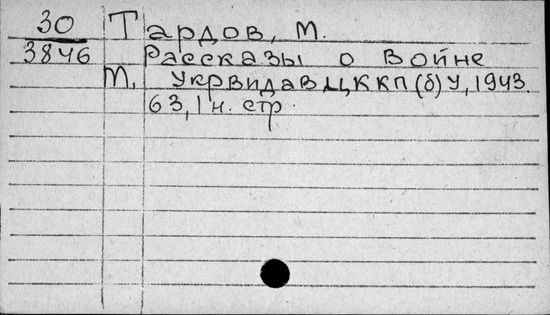 30 Тардов, М.
3846 Рассказы о войне
М, Укрвидав ЦККП(б)У, 1943.
63, 1 н. стр.